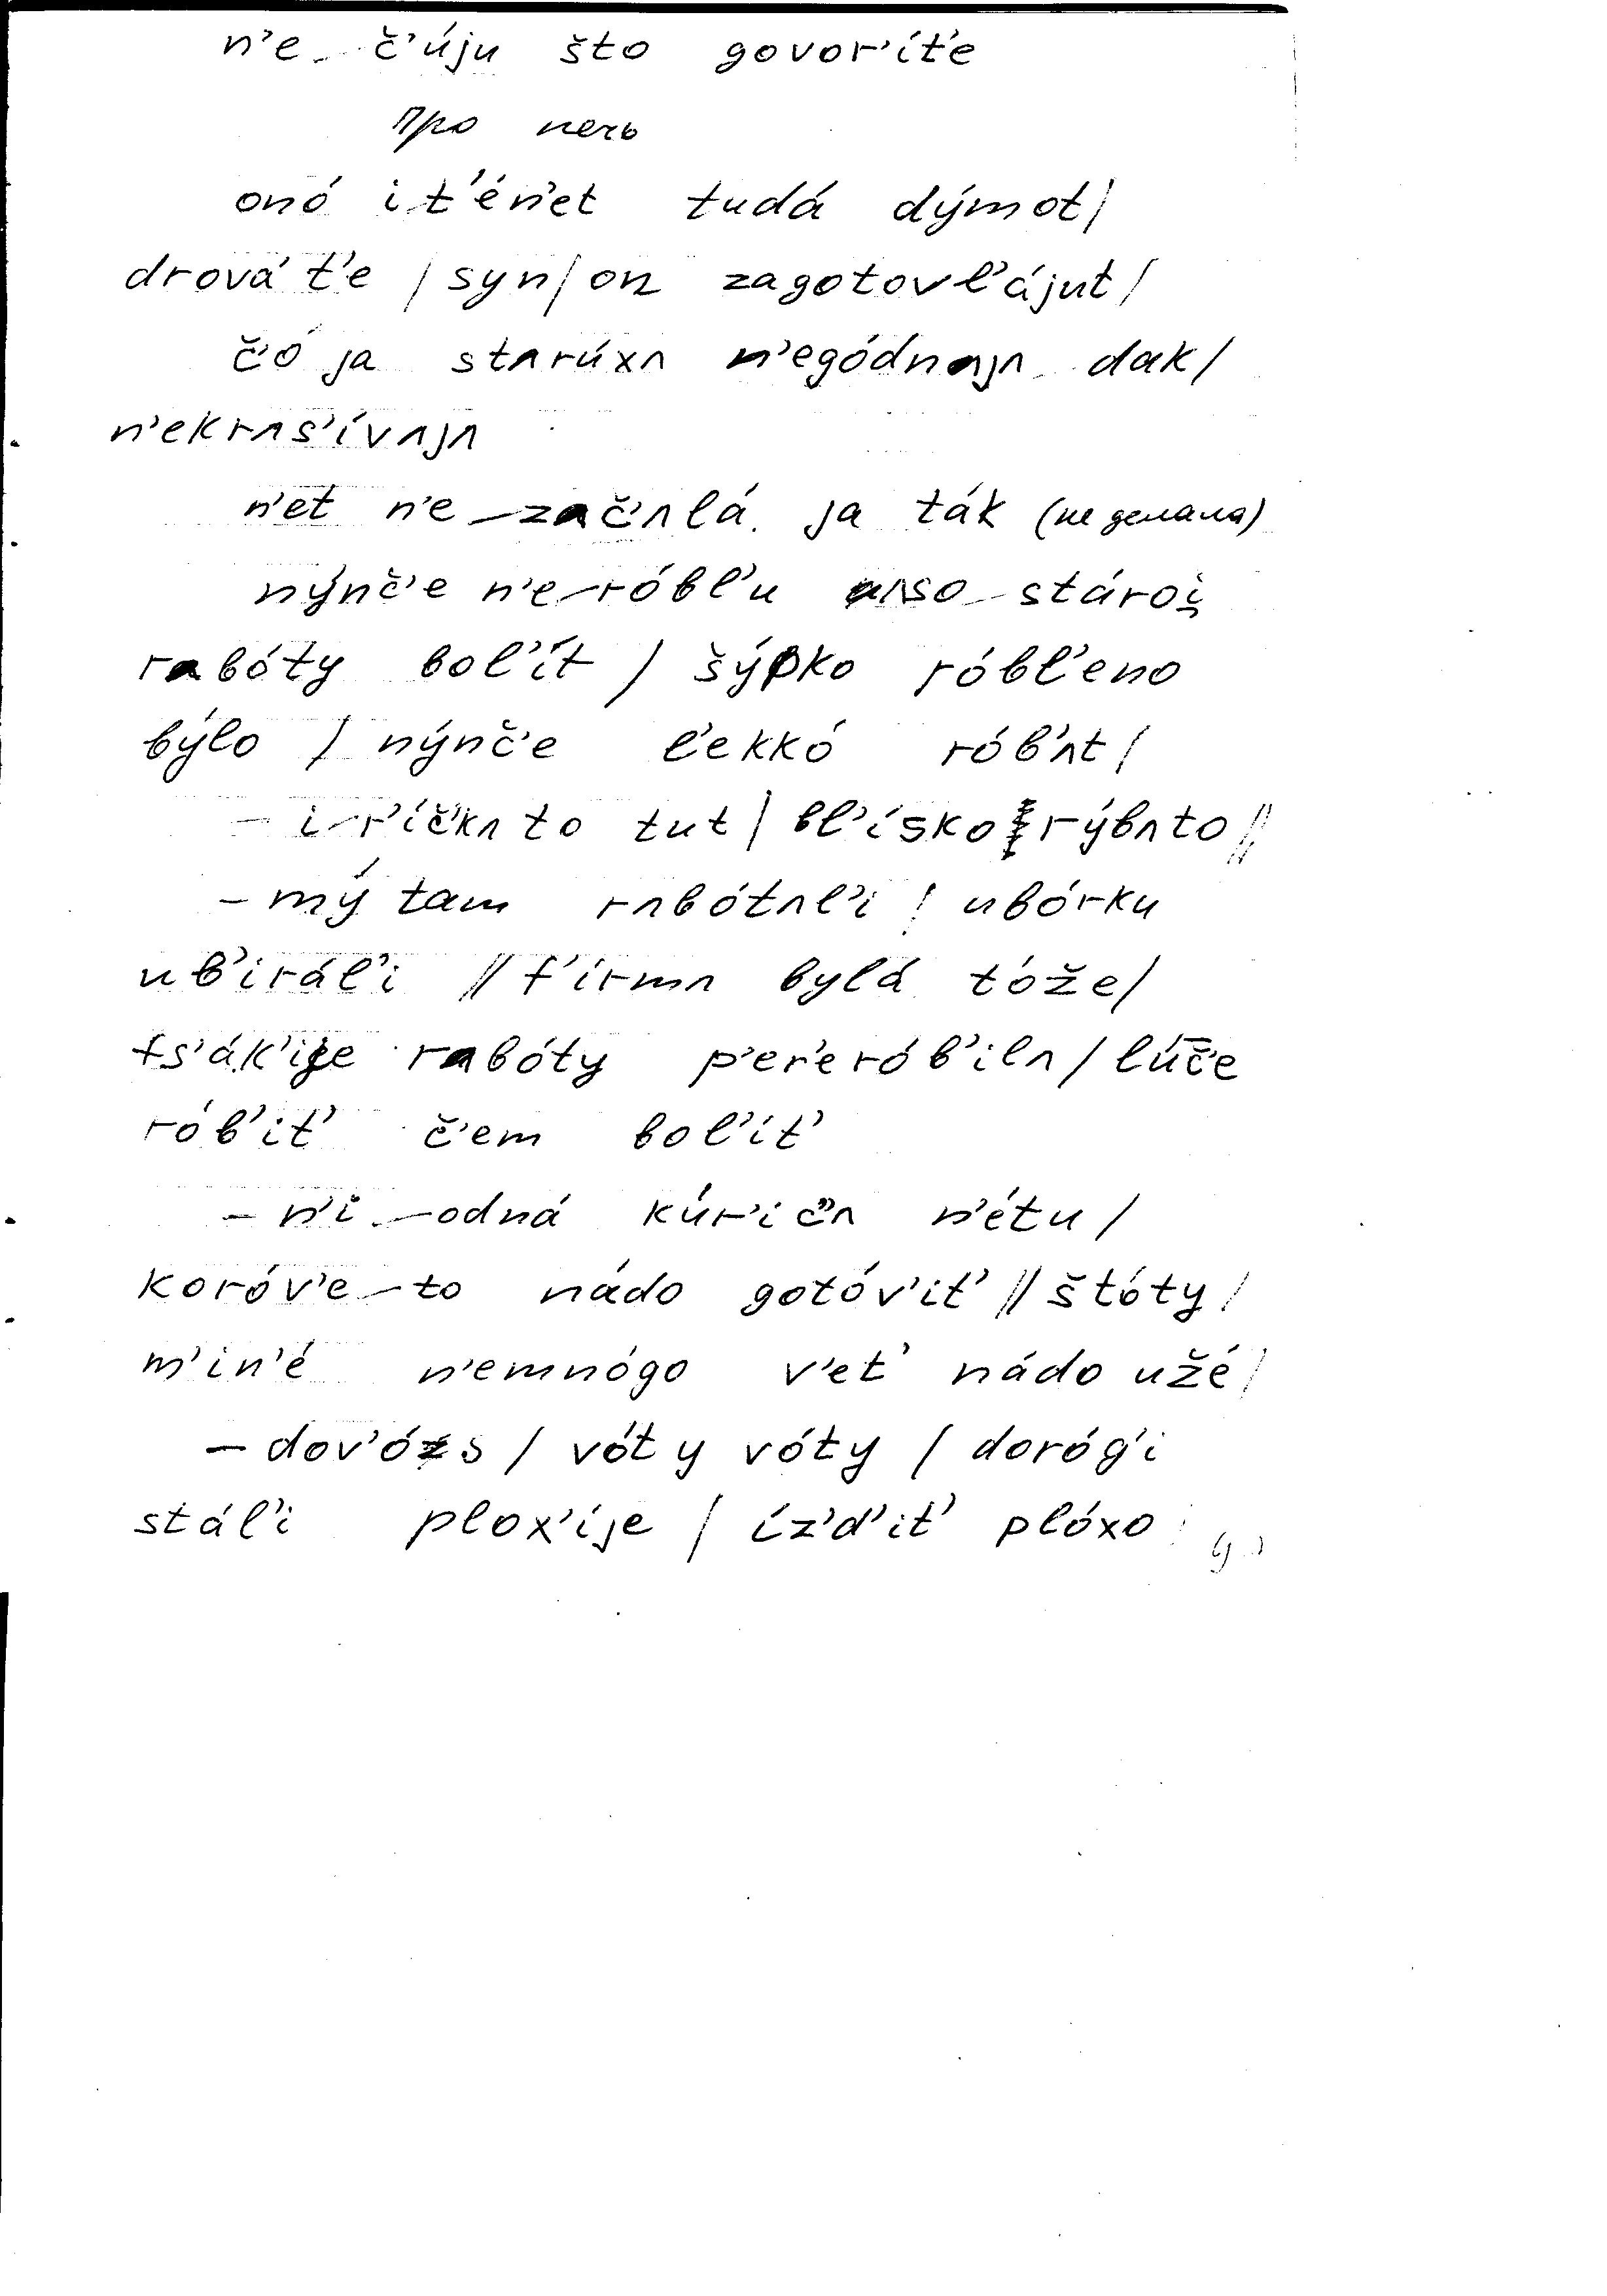 n'e č'új​u što govor'ít'e
про печь
onó i t'én'et tudá dýmot /
drová t'e / syn / on zagotovl'ájut /
č'ó ja stʌrúxʌ n'egódnʌjʌ dak /
n'ekrʌs'ívʌjʌ
n'et n'e-začʼʌlá ja ták (не делала)
nýnč'e n'e-róbl'u so-stároi̯
rabóty bol'ít / šýpko róbl'eno
býlo / nýnč'e l'ekkó rób'ʌt /
- i-r'íč'kʌto tut / bl'ísko rýbʌto //
- mý tam rʌbótʌl'i / ubórku
ub'irál'i // f'írmʌ bylá tóže /
fs'ák'ije rabóty p'er'erób'ilʌ / lúč̅'e
rób'it' č'em bol'ít'
- n'i-odná kúr'ič'ʌ n'étu /
koróv'e-to nádo gotóv'it' // štóty /
m'in'é n'emnógo v'et' nádo užé /
- dov'ós / vóty vóty / doróg'i
stál'i plox'íje / íz'd'it' plóxo